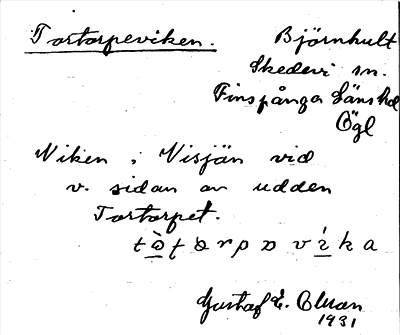 Tortorpeviken.
Björnhult
Skedevi sn.
Finspånga Länshd
Ögl
Viken i Visjön vid
v. sidan av udden
Tortorpet.
Gustaf E.
1931